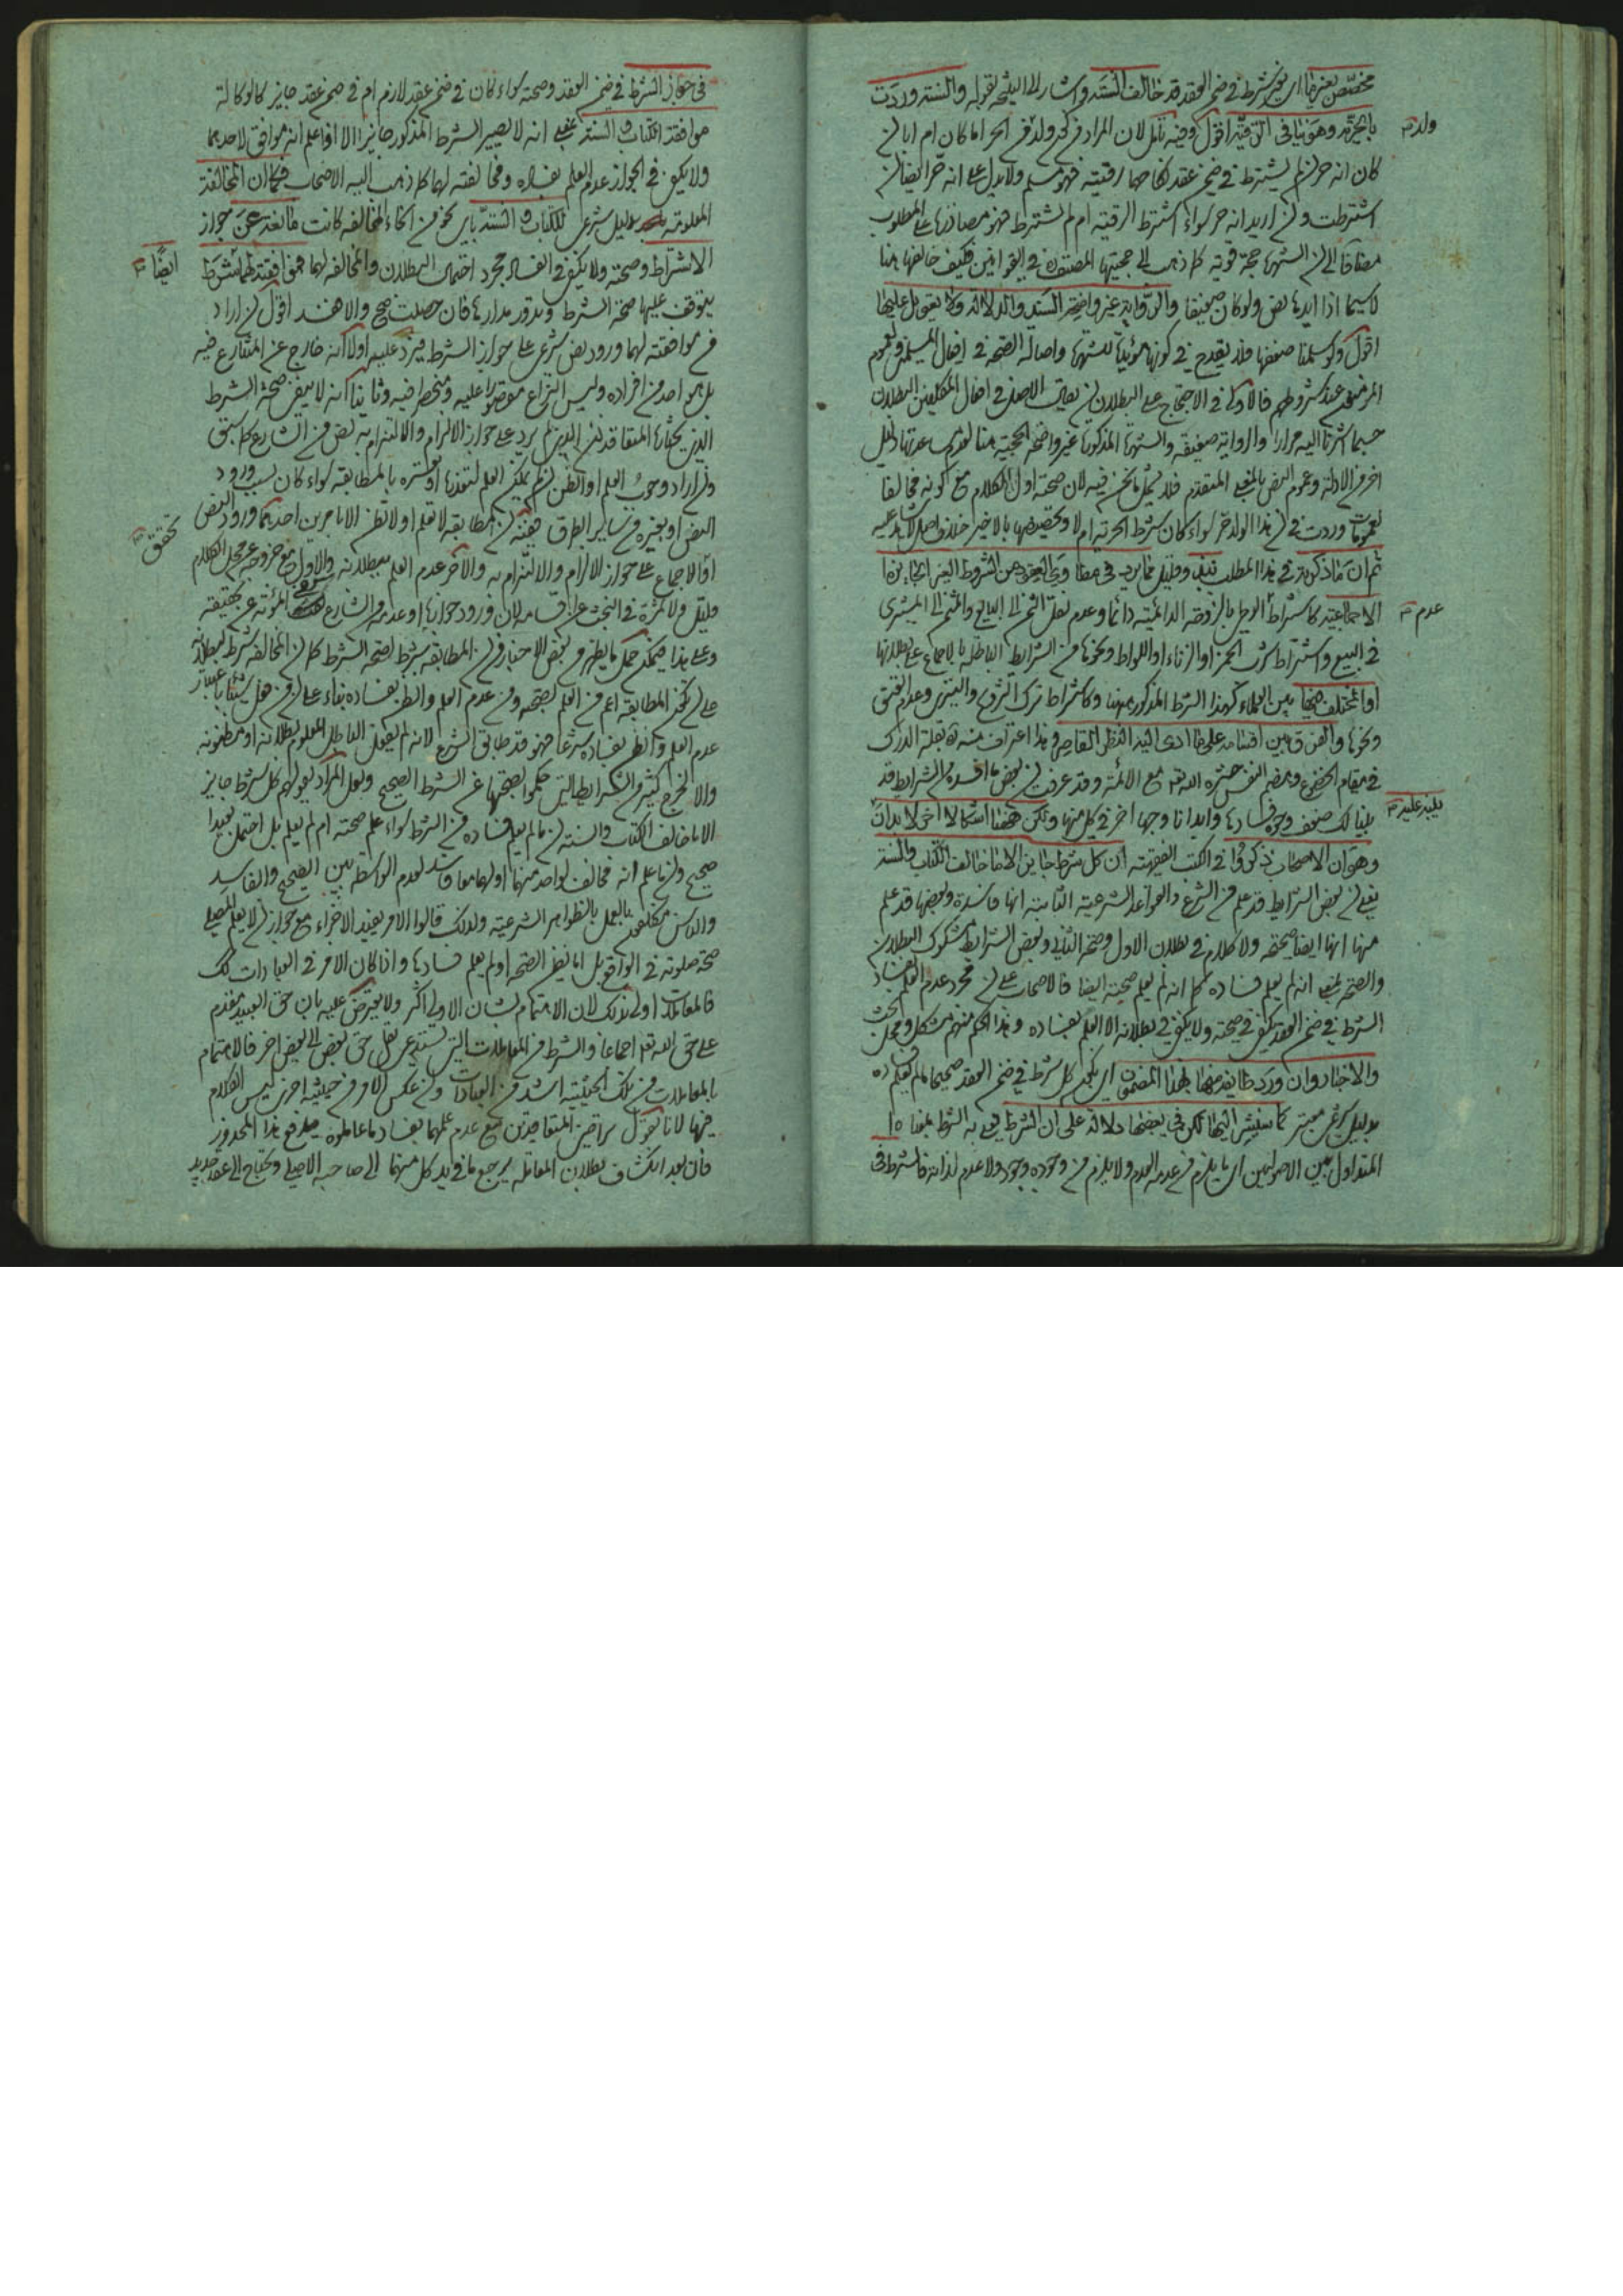 مخصّص بغيرها اى بغير شرط فى ضمن العقد قد خالف السنة واشار الى اليه بقوله والسنة وردت
بالحرية وهو ينافى الرقية اقول وفيه تامل لان المراد ولد الحر اما كان ام ابا لن
كان انه حر لم يشترط فى ضمن عقد نكاحها رقيته فهو مسلم ولا يدل على انه حر ايضا لن
اشترطت ولن اريد انه حر سواء اشترط الرقية ام لم يشترط فهو مصادرة على المطلوب
مضافا الى لن الشهرة حجة قوية كما ذهب الى حجيتها المصنف فى القوانين فكيف خالفها هنا
لا سيما اذا ايدها نص ولو كان ضعيفا والرواية غير واضحة السند والدلالة ولا يعول عليها
اقول ولو سلمنا ضعفها فلا يقدح فى كونها مؤيدة للشهرة واصالة الصحة فى افعال المسلمين وعموم
المؤمنون عند شروطهم فالاولى فى الاحتجاج على البطلان لن يقال الاصل فى افعال المكلفين البطلان
حسبما اشرنا اليه مرارا والرواية ضعيفة والشهرة المذكورة غير واضحة الحجية هنا لعدم دليل
اخر من الادلة وعموم النص بالمعنى المتقدم فلا يشمل ما نحن فيه لان صحته اول الكلام مع كونه مخالفا
لعمومات وردت فى لن هذا الولد حر سواء كان شرط الحرية ام لا وتخصيصها بالاخير خلاف اصل لا بد عليه
ثم ان ما ذكرته فى هذا المطلب نبذ وقليل مما يرد فى مطاوى العقود من الشروط الغير الجايزة
الاجماعية كاشتراط الوطى بالزوجة الدائمية دائما وعدم نقل الثمن الى البايع والمثمن الى المشترى
فى البيع واشتراط شرب الخمر او الزناء او اللواط ونحوها من الشرايط الباطلة بالاجماع على بطلانها
او المختلف فيها بين العلماء كهذا الشرط المذكور هيهنا وكاشتراط ترك التزوج والتسرى وعدم العتق
ونحوها والفرق بين اقسامه على ما ادى اليه النظر القاصر وهذا اعتراف منه ره بقلة الدرك
فى مقام الخضوع وهضم النفس حشره الله تعه مع الائمة وقد عرفت لن بعض ما افسده من الشرايط قد
بينا لك ضعف وجوه فسادها وابدانا وجها اخر فى كل منها ولكن هيهنا اشكالا اخر لا بد ان
وهو ان الاصحاب ذكروا فى الكتب الفقهية ان كل شرط جايز الا ما خالف الكتاب والسنة
يعنى لن بعض الشرايط قد علم من الشرع والقواعد الشرعية الثابتة انها فاسدة وبعضها قد علم
منها انها ايضا صحيحة ولا كلام فى بطلان الاول وصحة الثانى وبعض الشرايط مشكوك البطلان
والصحة بمعنى انه لم يعلم فساده كما انه لم يعلم صحته ايضا فالاصحاب على لن مجرد عدم العلم بفساد
الشرط فى ضمن العقد يكفى فى صحته ولا يكفى فى بطلانه الا العلم بفساده وهذا الحكم منهم مشكل ومحل البحث
والاخبار وان ورد طايفة منها بهذا المضمون اى يكون كل شرط فى ضمن العقد صحيحا ما لم يعلم فساده
بدليل شرعى معتبر كما سنشير اليها لكن فى بعضها دلالة على ان الشرط يعنى به الشرط بمعناه
المتداول بين الاصوليين اى ما يلزم من عدمه العدم ولا يلزم من وجوده وجود ولا عدم لذاته فالشرط فى
ولد
عدم
ينبه عليه
فى جواز الشرط فى ضمن العقد وصحته سواء كان فى ضمن عقد لازم ام فى ضمن عقد جايز كالوكالة
موافقة الكتاب والسنة بمعنى انه لا يصير الشرط المذكور جايزا الا اذا علم انه موافق لاحدهما
ولا يكفى فى الجواز عدم العلم بفساده ومخالفته لهما كما ذهب اليه الاصحاب فكما ان المخالفة
المعلومة بدليل شرعى للكتاب والسنة باى نحو من انحاء المخالفة كانت مانعة عن جواز
الاشتراط وصحته ولا يكفى فى الفساد مجرد احتمال البطلان والمخالفة لهما فموافقته لهما شرط
يتوقف عليها صحة الشرط وتدور مدارها فان حصلت صح والا فسد اقول لن اراد
من موافقته لهما ورود نص شرعى على جواز الشرط فيرد عليه اولا انه خارج عن المتنازع فيه
بل هو احد من افراده وليس النزاع مقصورا عليه ومنحصرا فيه وثانيا انه لا يبقى صحة الشرط
الذى يختارها المتعاقدان الذين لم يرد على جواز الالزام والالتزام به نص من الشارع كما سبق
ولن اراد وجوب العلم او الظن لن لم يمكن العلم لتعذره او تعسره بالمطابقة سواء كان بسبب ورود
النص او بغيره من ساير الطرق ففيه لن المطابقة لا تعلم او لا تظن الا بامرين احدهما ورود النص
او الاجماع على جواز الالزام والالتزام به والآخر عدم العلم ببطلانه والاول مع خروجه عن محل الكلام
قليل ولا ثمرة فى البحث عن اقسامه لان ورود جوازها او عدمه من الشارع المؤنة عن تحقيقه
وعلى هذا فيمكن حمل ما يظهر من بعض الاخبار من لن المطابقة شرط لصحة الشرط كما لن المخالفة شرط لبطلانه
على لن يكون المطابقة اعم من العلم بصحته ومن عدم العلم والظن بفساده بناء على لن من فعل شيئا باعتبار
عدم العلم والظن بفساده شرعا فهو قد طابق الشرع لانه لم يفعل الباطل المعلوم بطلانه او مظنونه
والا لخرج كثير من الشرايط التى حكموا بصحتها عن الشرط الصحيح ولعل المراد بقولهم كل شرط جايز
الا ما خالف الكتاب والسنة لن ما لم يعلم فساده من الشرط سواء علم صحته ام لم يعلم بل احتمل بعيدا
صحيح ولن ما علم انه مخالف لواحد منهما او لهما معا فاسد لعدم الواسطة بين الصحيح والفاسد
والناس مكلفون بالعمل بالظواهر الشرعية ولذلك قالوا الامر يفيد الاجزاء مع جواز لن لا يعلم المصلى
صحة صلوته فى الواقع بل اما يظن الصحة او لم يعلم فسادها واذا كان الامر فى العبادات كك
فالمعاملات اولى بذلك لان الاهتمام بشان الاولى اكثر ولا يعترض عليه بان حق العبيد مقدم
على حق الله تعه اجماعا والشرط من المعاملات التى تستدعى نقل حق بعض الى بعض اخر فالاهتمام
بالمعاملات من تلك الحيثية اشد من العبادات ولن عكس الامر من حيثية اخرى ليس الكلام
فيها لانا نقول تراضى المتعاقدين مع عدم علمهما بفساد ما عاملوه يدفع هذا المحذور
فان بعد انكشاف بطلان المعاملة يرجع ما فى يد كل منهما الى صاحبه الاصلى ويحتاج الى عقد جديد
ايضًا
تحقق